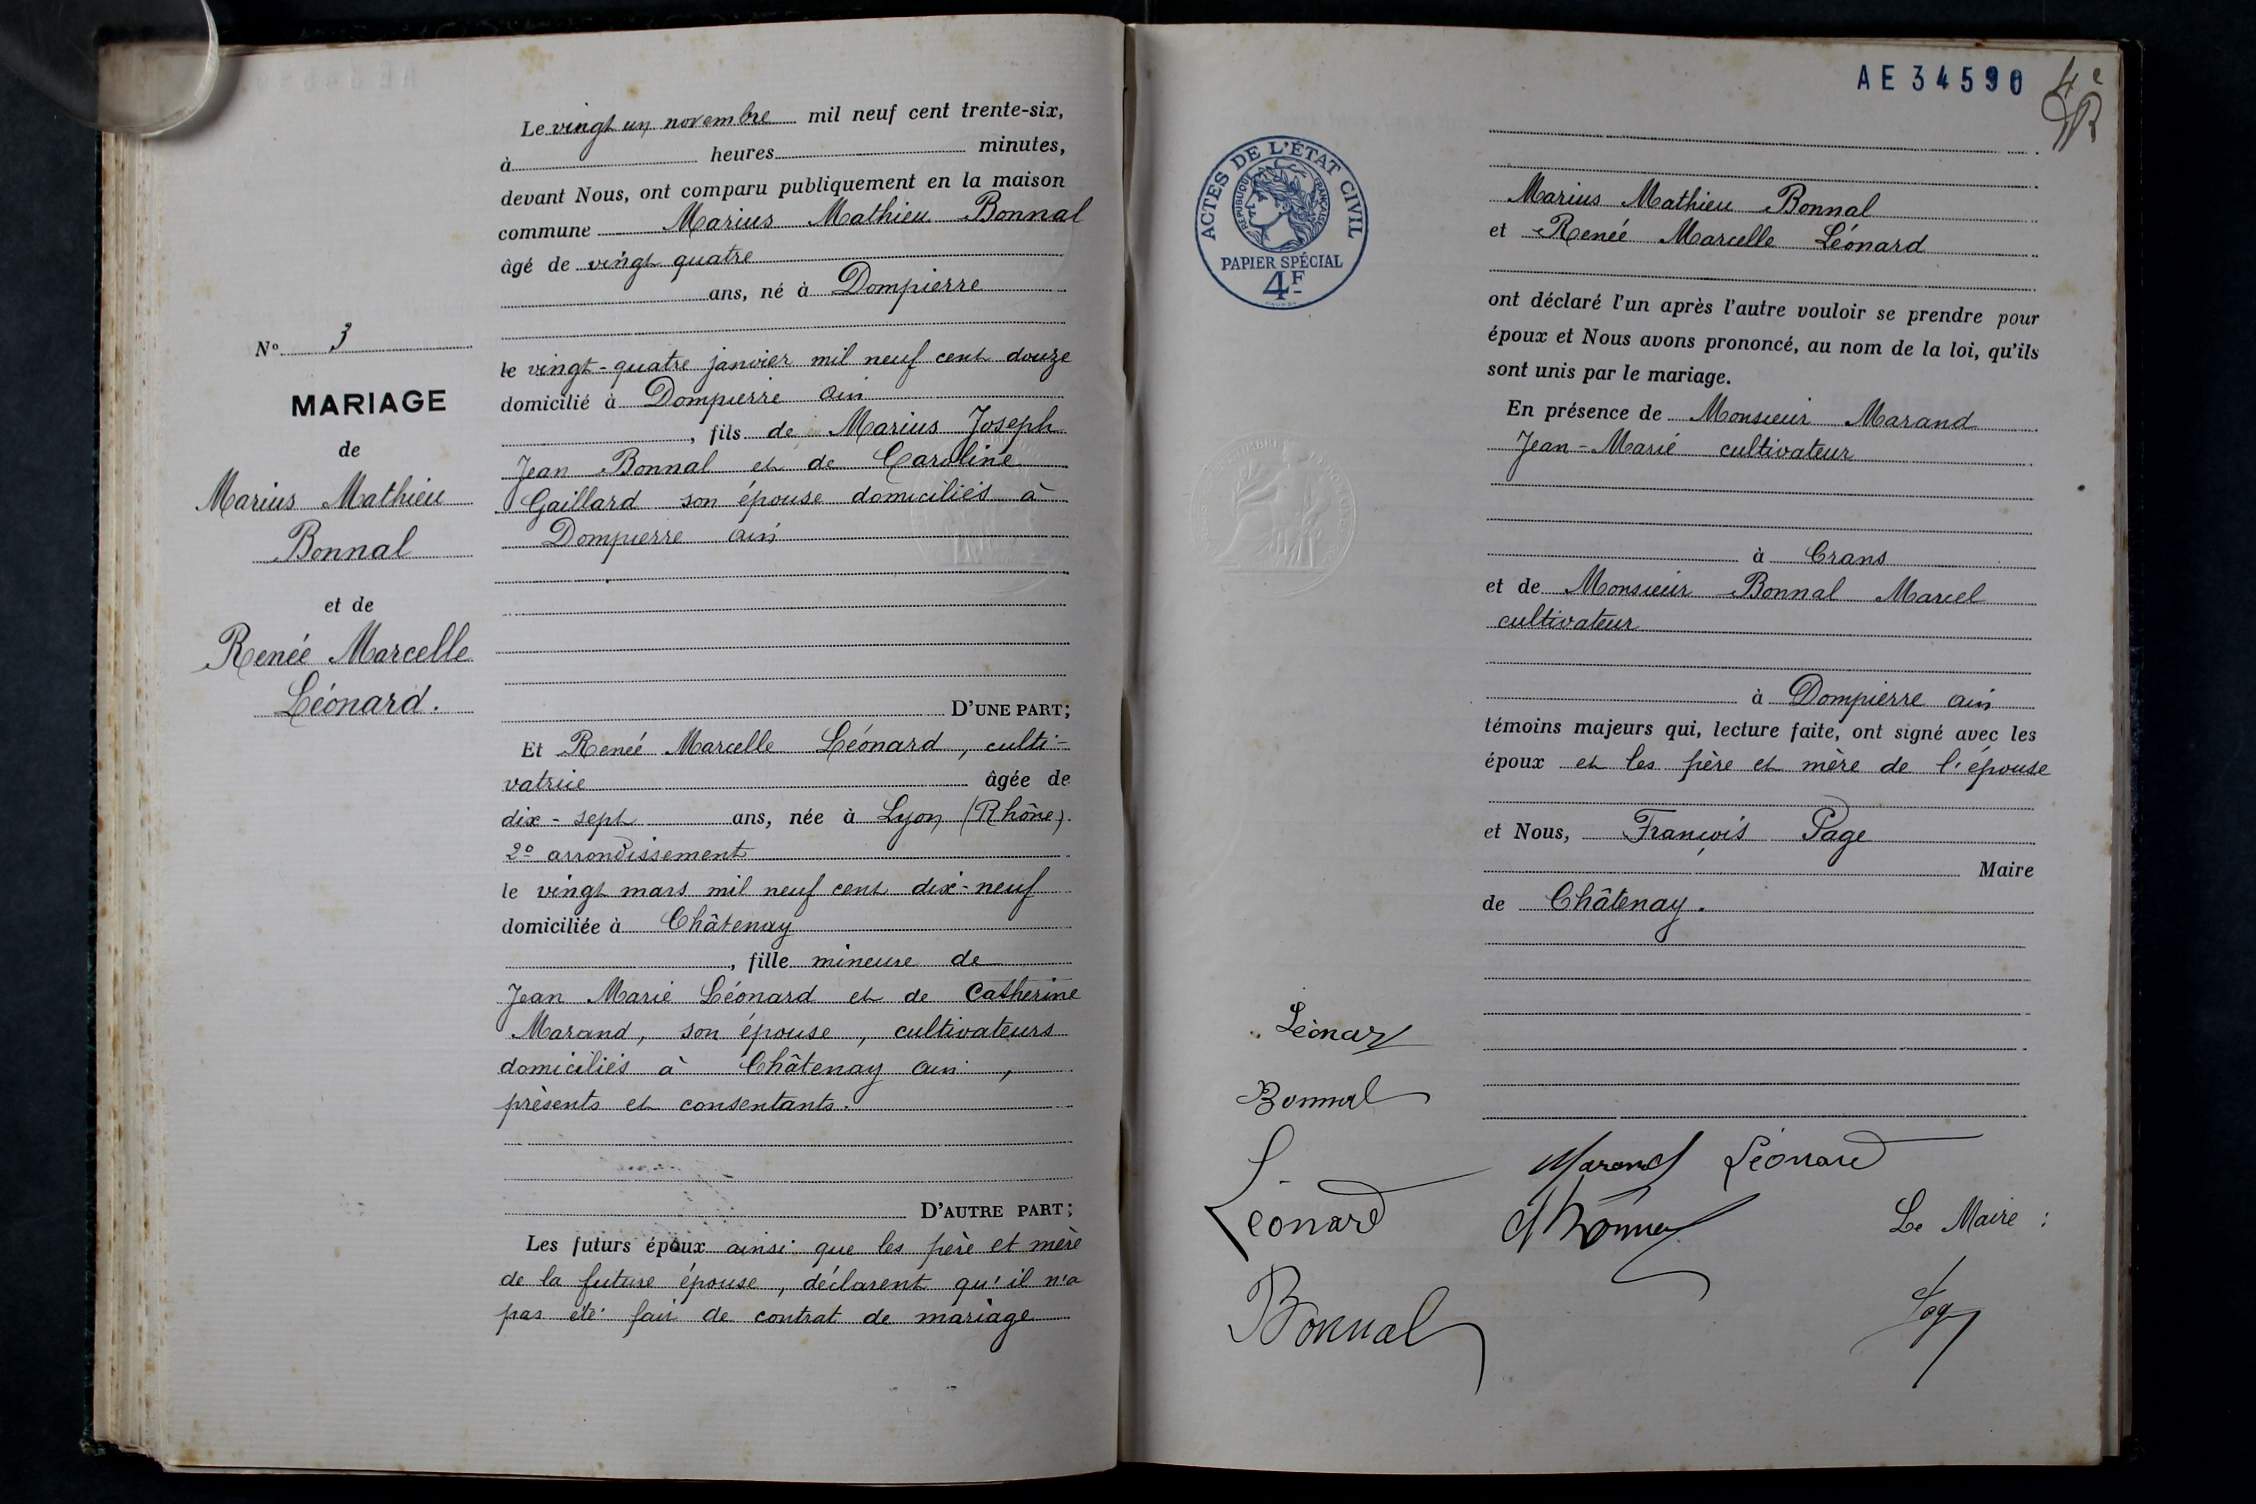 Le vingt un novembre mil neuf cent trente-six,
à heures minutes,
devant Nous, ont comparu publiquement en la maison
commune Marius Mathieu Bonnal
âgé de vingt quatre
ans, né à Dompierre
le vingt-quatre janvier mil neuf cent douze
domicilié à Dompierre ain
, fils de Marius Joseph
Jean Bonnal et de Caroline
Gaillard son épouse domiciliés à
Dompierre ain
D'UNE PART;
Et Renée Marcelle Léonard, culti-
vatrice âgée de
dix-sept ans, née à Lyon (Rhône).
2e arrondissement
le vingt mars mil neuf cent dix-neuf
domiciliée à Châtenay
, fille mineure de
Jean Marie Léonard et de Catherine
Marand, son épouse, cultivateurs
domiciliés à Châtenay ain,
présents et consentants.
D'AUTRE PART;
Les futurs époux ainsi que les père et mère
de la future épouse, déclarent qu'il n'a
pas été fait de contrat de mariage
No 3
MARIAGE
de
Marius Mathieu
Bonnal
et de
Renée Marcelle
Léonard.
AE 34590
4e
ACTES DE L'ÉTAT CIVIL
RÉPUBLIQUE FRANÇAISE
PAPIER SPÉCIAL
4F
Marius Mathieu Bonnal
et Renée Marcelle Léonard
ont déclaré l'un après l'autre vouloir se prendre pour
époux et Nous avons prononcé, au nom de la loi, qu'ils
sont unis par le mariage.
En présence de Monsieur Marand
Jean-Marie cultivateur
à Crans
et de Monsieur Bonnal Marcel
cultivateur
à Dompierre ain
témoins majeurs qui, lecture faite, ont signé avec les
époux et les père et mère de l'épouse
et Nous, François Page
Maire
de Châtenay.
Léonard
Bonnal
Marand Léonard
Léonard
Le Maire :
Bonnal
Page